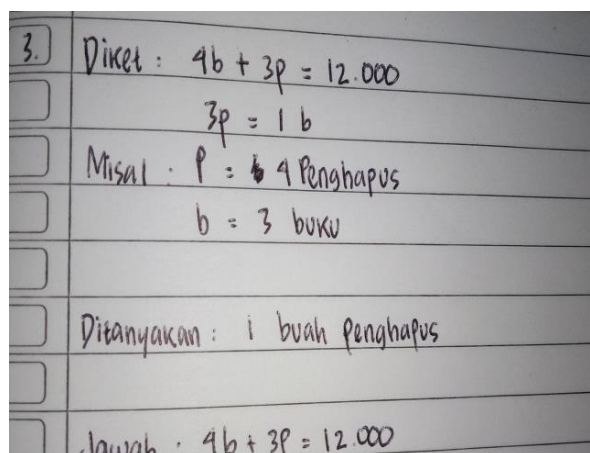 3. Diket : 4b + 3p = 12.000
3p = 1 b
Misal : P = 4 Penghapus
b = 3 buku
Ditanyakan : 1 buah penghapus
Jawab : 4b + 3P = 12.000